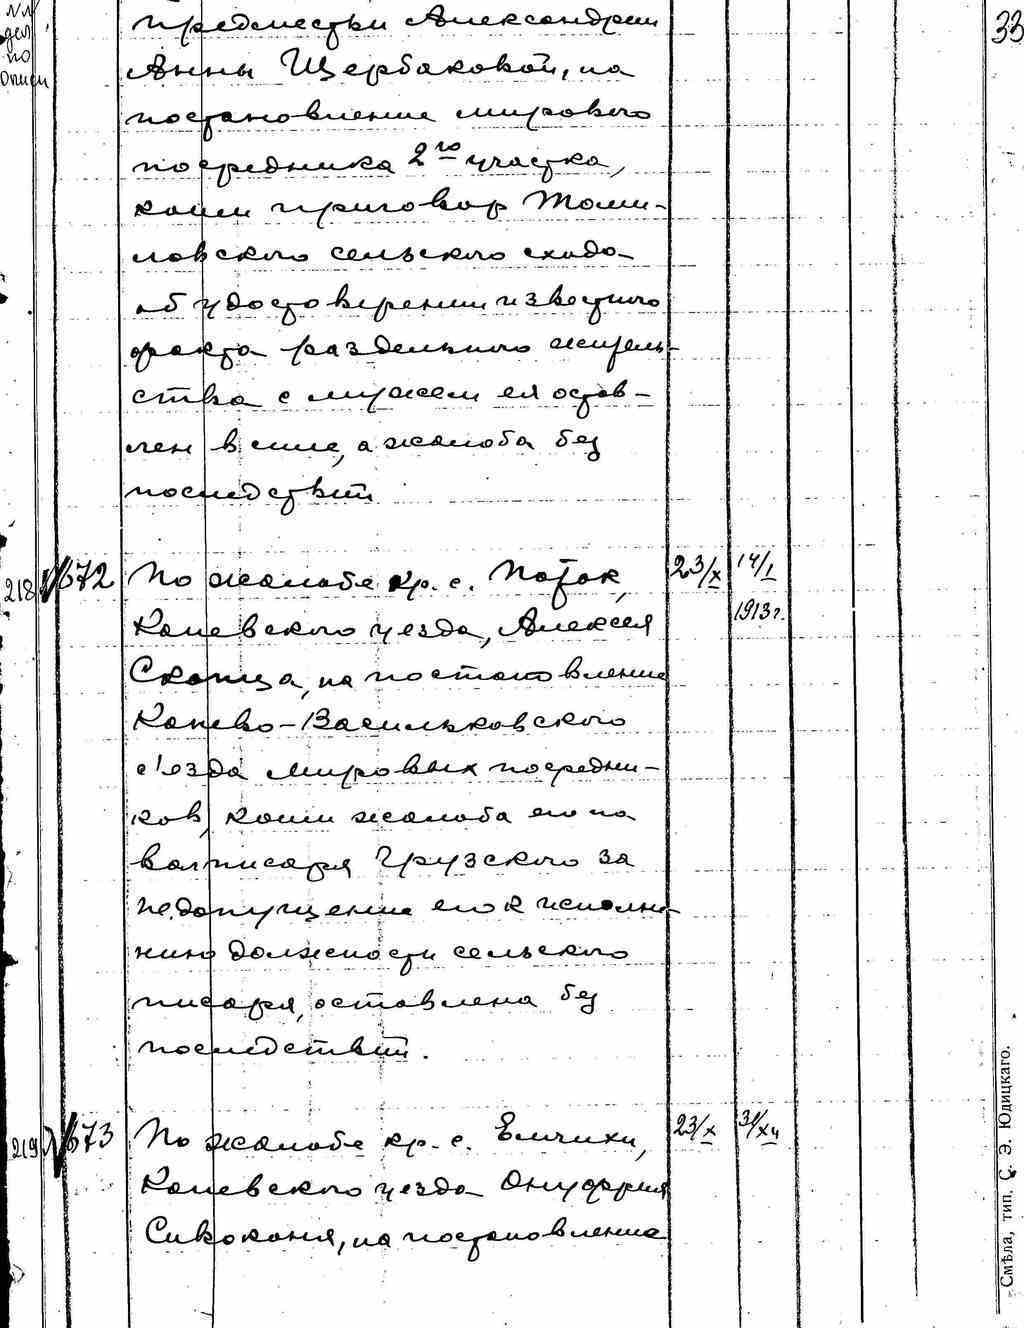 33
NN
дел
по
Описи
предместьи Александрии
Анны Щербаковой, на
постановление мирового
посредника 2го участка,
коим приговор Томи-
ловского сельского схода
об удостоверении известного
факта раздельного житель-
ства с мужем ея остав-
лен в силе, а жалоба без
последствий
218 672 По жалобе кр. с. Поток, 23/X 14/I
Каневского уезда, Алексея 1913 г.
Скопца, на постановление
Канево-Васильковского
с'езда мировых посредни-
ков, коим жалоба его на
волписаря Грузского за
недопущение его к исполне-
нию должности сельского
писаря, оставлена без
последствий.
219 673 По жалобе кр. с. Емчихи, 23/X 31/XII
Каневского уезда Онуфрия
Сивоконя, на постановление
Смѣла, тип. С. Э. Юдицкаго.